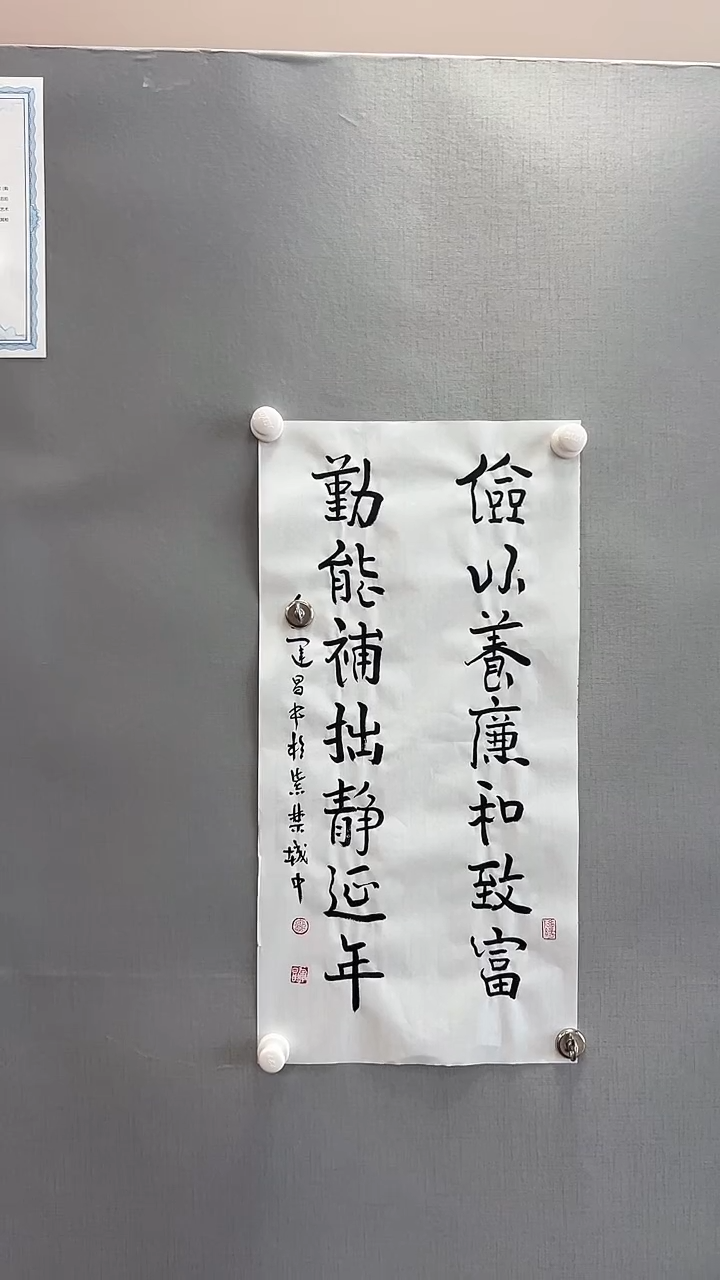 儉以養廉和致富
勤能補拙静延年
建昌书於紫禁城中